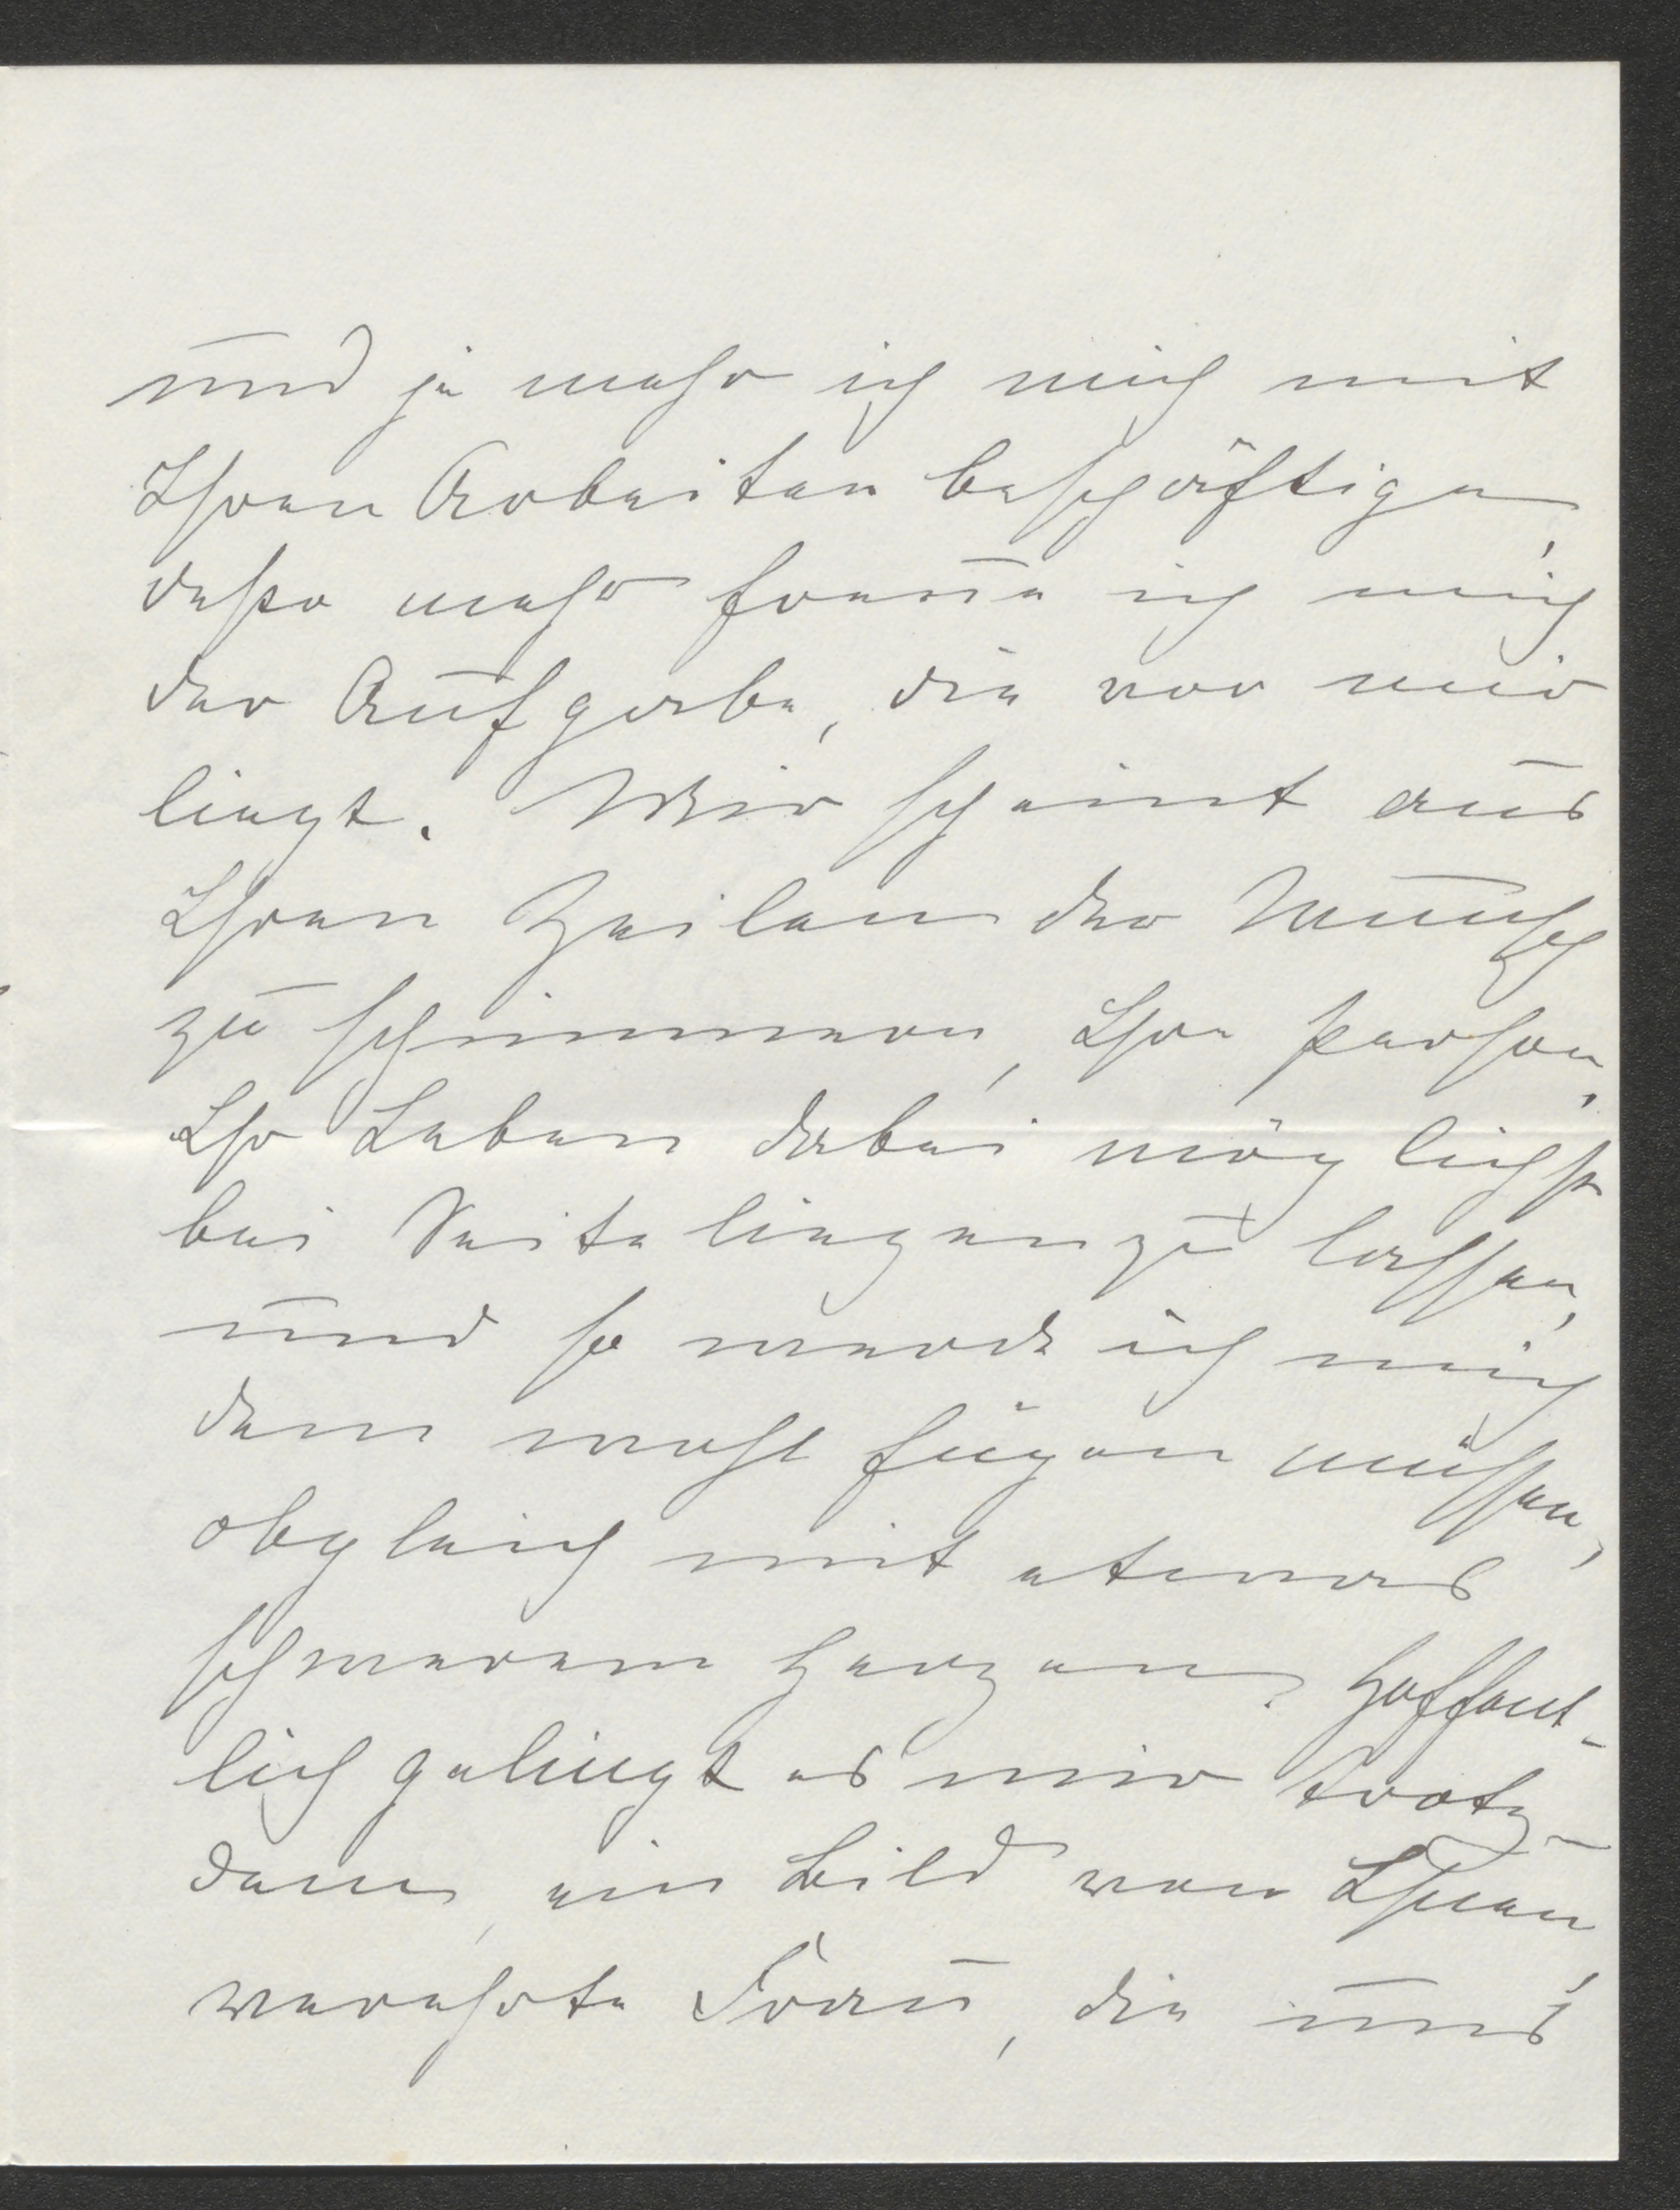 und je mehr ich mich mit
Ihren Arbeiten beschäftige,
desto mehr freue ich mich
der Aufgabe, die vor mir
liegt. Mir scheint aus
Ihren Zeilen der Wunsch
zu schimmern, Ihre Person,
Ihr Leben dabei möglichst
bei Seite liegen zu lassen,
und so werde ich mich
dem wohl fügen müssen,
obgleich mit etwas
schwerem Herzen. Hoffent-
lich gelingt es mir trotz-
dem, ein Bild von Ihnen,
verehrte Frau, die uns